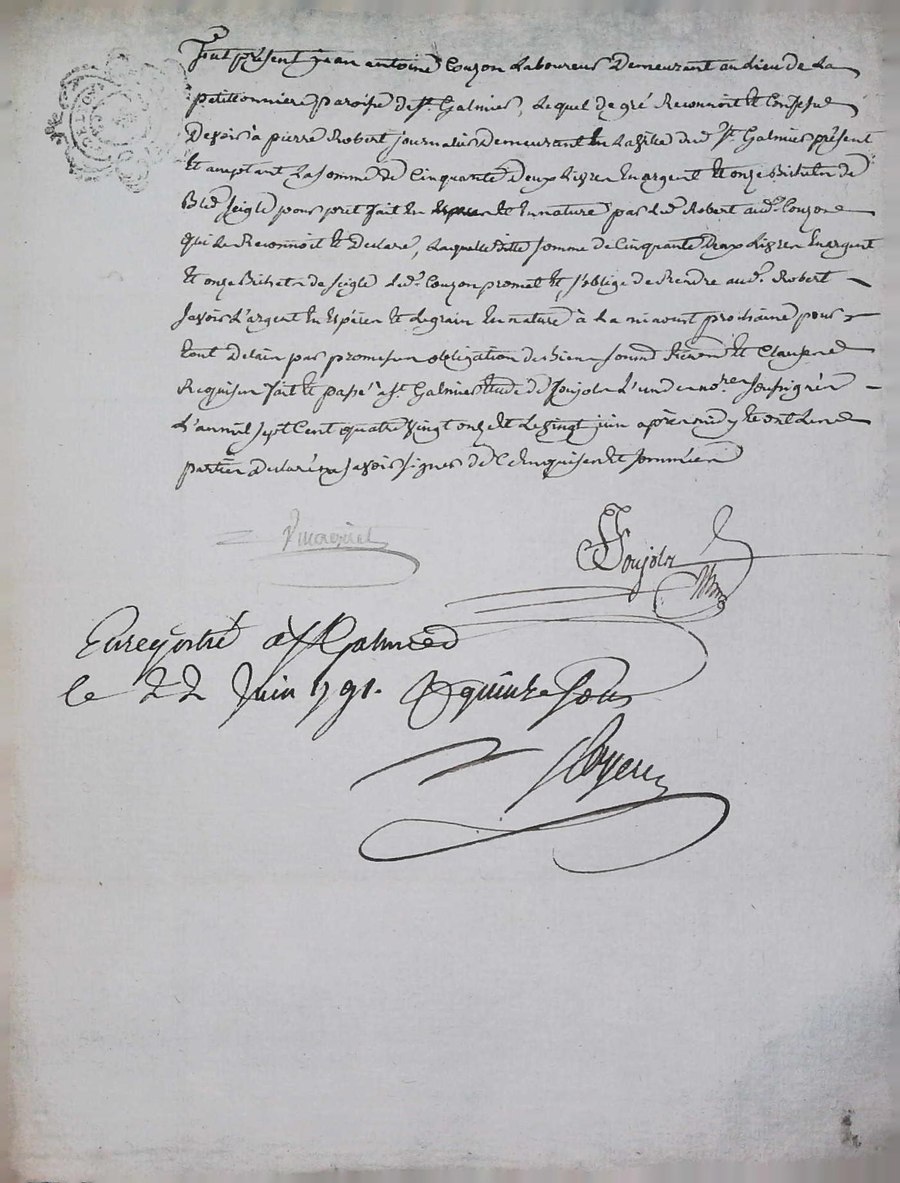 Fut présent jean antoine Couzon Laboureur Demeurant au lieu de La
petitionniere paroisse de St. Galmier, Lequel de gré Reconnoit Et Confesse
Devoir à pierre Robert journalier Demeurant En La Ville dud. St. Galmier présent
Et acceptant La somme de Cinquante Deux Livres En argent Et onze Bichets de
Bled Seigle pour prêt fait En Espèces Et En nature par led. Robert aud. Couzon
qui Le Reconnoit Et Déclare, Laquelle ditte somme de Cinquante Deux Livres En argent
Et onze Bichets de Seigle Led. Couzon promet Et s'oblige de Rendre aud. Robert
Savoir L'argent En Espèces Et Le grain En nature à La mi aoust prochaine pour
tout Délain par promesses obligation de Biens soumis Renon. Et Clauses
Requises fait Et passé à St. Galmier Etude de Soujols L'un des no.res soussignés
L'an mil sept Cent quatre vingt onze Et Le vingt juin après midy Et ont Les
parties déclaré ne savoir signer de Ce Enquises Et sommées
Soujols
Enregistré à St Galmier
le 22 Juin 1791. R quinze sous